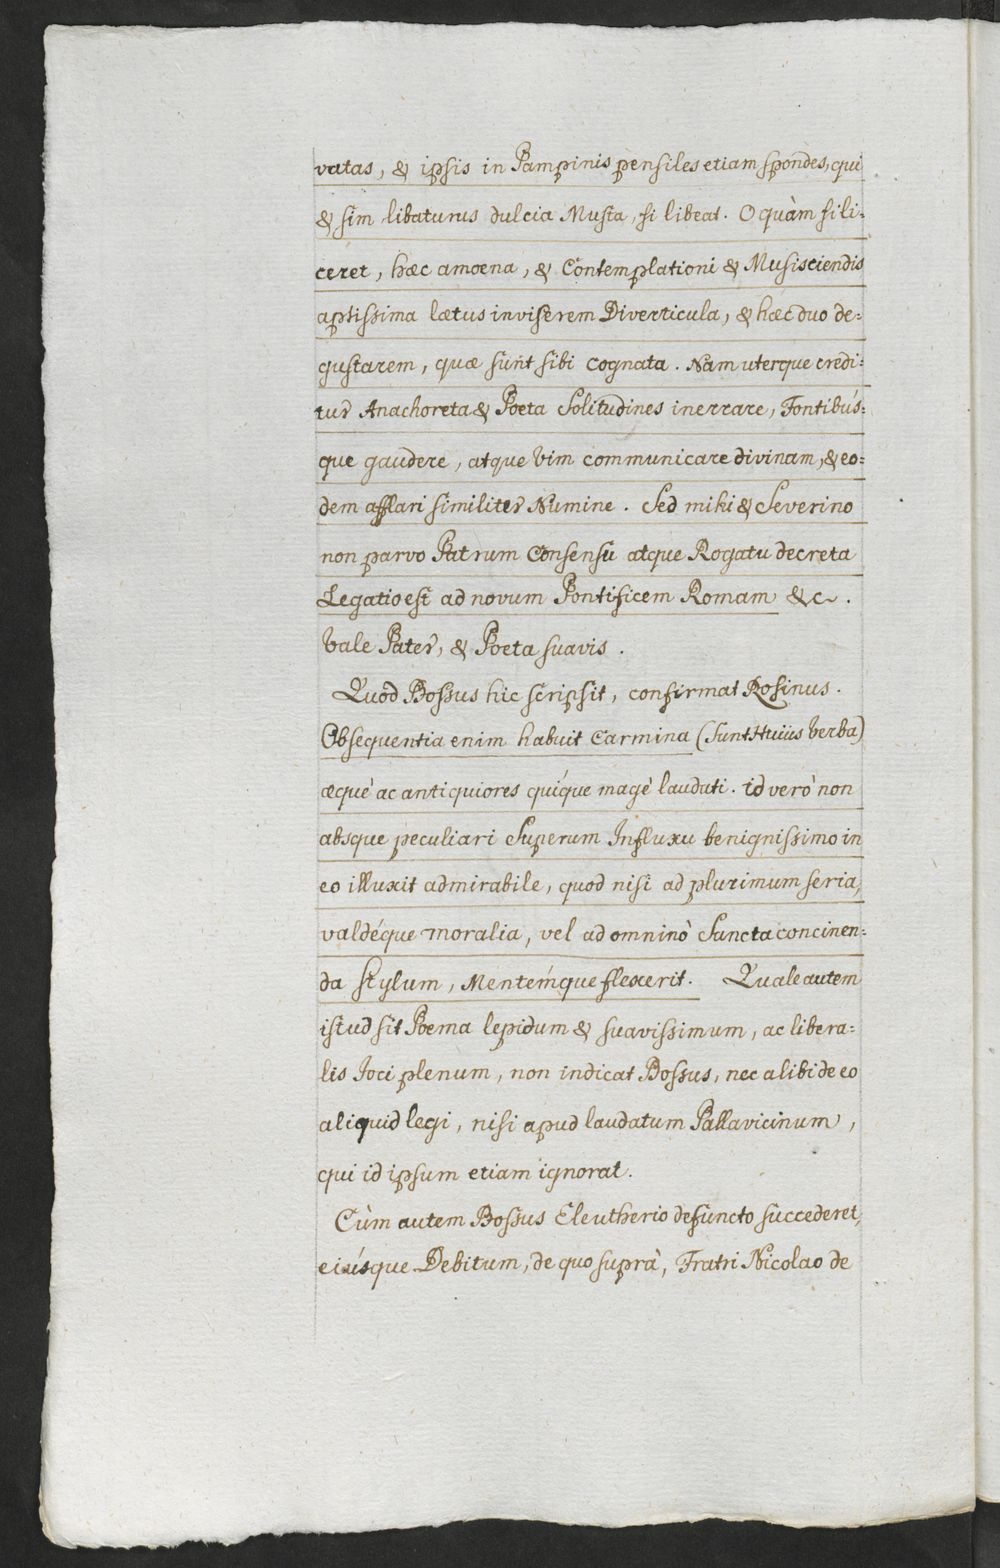 vatas, & ipsis in Pampinis pensiles etiam spondes, qui
& sim libaturus dulcia Musta, si libeat. O quàm si li-
ceret, hæc amoena, & Contemplationi & Musis ciendis
aptissima lætus inviserem Diverticula, & hæc duo de-
gustarem, quæ sunt sibi cognata. Nam uterque credi-
tur Anachoreta & Poeta Solitudines inerrare, Fontibús-
que gaudere, atque vim communicare divinam, & eo-
dem afflari similiter Numine. Sed mihi & Severino
non parvo Patrum Consensu atque Rogatu decreta
Legatio est ad novum Pontificem Romam &c.
Vale Pater, & Poeta suavis.
Quod Bossus hic scripsit, confirmat Rosinus.
Obsequentia enim habuit Carmina (Sunt Huius verba)
æquè ac antiquiores quíque magè laudati. id verò non
absque peculiari Superum Influxu benignissimo in
eo illuxit admirabile, quod nisi ad plurimum seria,
valdéque moralia, vel ad omninò Sancta concinen-
da stylum, Mentémque flexerit. Quale autem
istud sit Poema lepidum & suavissimum, ac libera-
lis Joci plenum, non indicat Bossus, nec alibi de eo
aliquid legi, nisi apud laudatum Pallavicinum,
qui id ipsum etiam ignorat.
Cùm autem Bossus Eleutherio defuncto succederet,
eiúsque Debitum, de quo suprà, Fratri Nicolao de